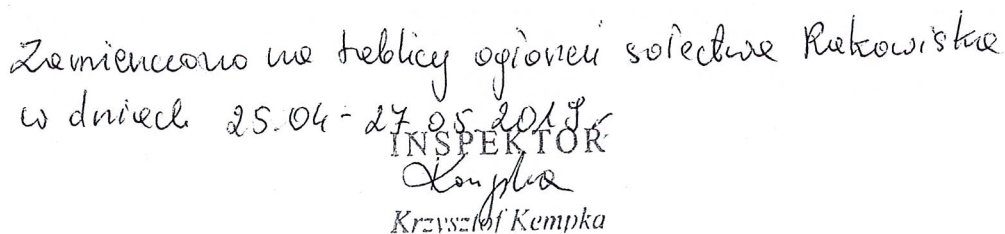 Zamieszczono na tablicy ogłoszeń sołectwa Rakowiska
w dniach 25.04 - 27.05.2019 r.
INSPEKTOR
Kempka
Krzysztof Kempka